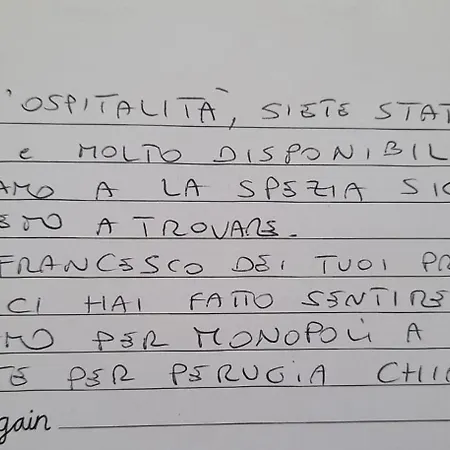 'OSPITALITÀ, SIETE STAT
e MOLTO DISPONIBIL
AMO A LA SPEZIA SIC
EMO A TROVARE.
FRANCESCO DEI TUOI PR
CI HAI FATTO SENTIRE
MO PER MONOPOLI A
TE PER PERUGIA CHIC
gain